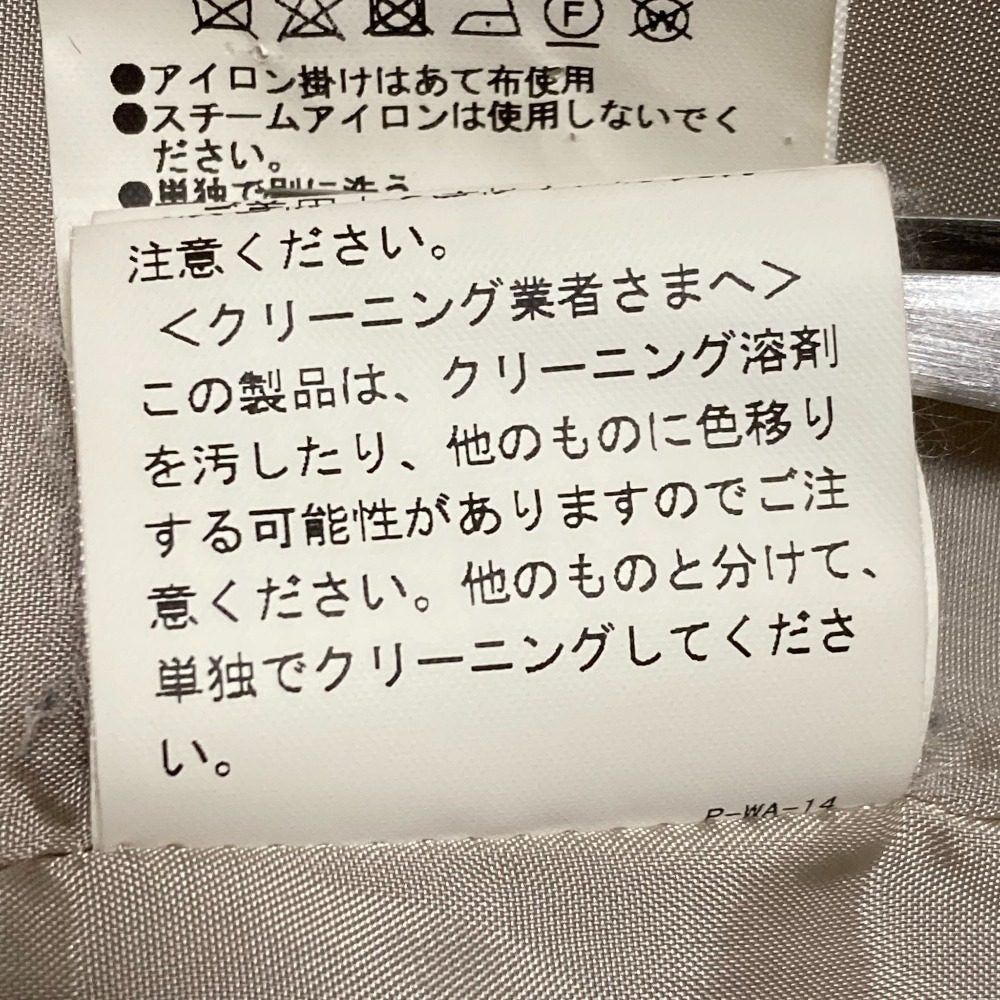 F
W
●アイロン掛けはあて布使用
●スチームアイロンは使用しないでく
ださい。
●単独で別に洗う
注意ください。
＜クリーニング業者さまへ＞
この製品は、クリーニング溶剤
を汚したり、他のものに色移り
する可能性がありますのでご注
意ください。他のものと分けて、
単独でクリーニングしてくださ
い。
P-WA-14